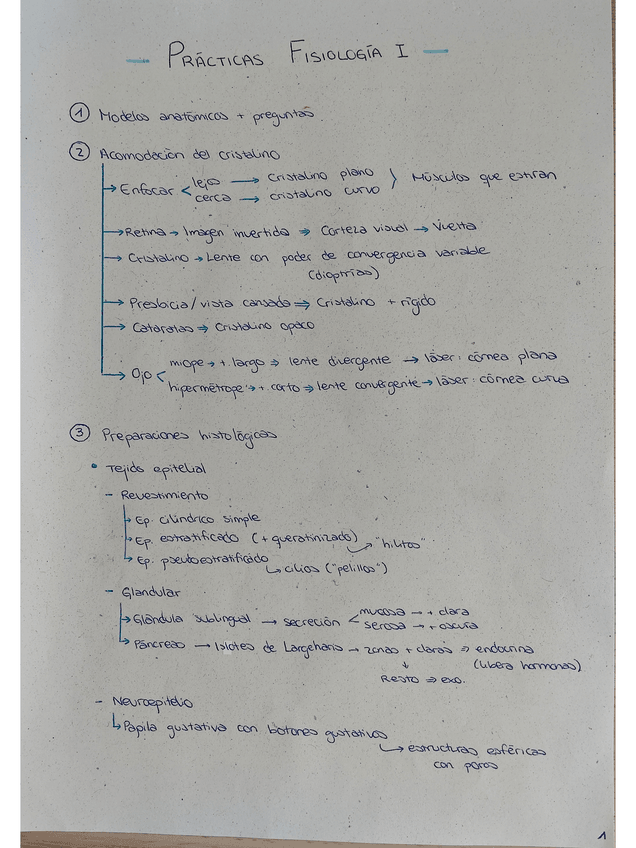 — PRÁCTICAS FISIOLOGÍA I —
① Modelos anatómicos + preguntas
② Acomodación del cristalino
→ Enfocar < lejos → cristalino plano } Músculos que estiran
cerca → cristalino curvo
→ Retina → Imagen invertida ⇒ Corteza visual → Vuelta
→ Cristalino → Lente con poder de convergencia variable
(dioptrías)
→ Presbicia/vista cansada ⇒ Cristalino + rígido
→ Cataratas ⇒ Cristalino opaco
→ Ojo < miope → + largo ⇒ lente divergente → láser: córnea plana
hipermétrope → + corto ⇒ lente convergente → láser: córnea curva
③ Preparaciones histológicas
• Tejido epitelial
- Revestimiento
→ Ep. cilíndrico simple
→ Ep. estratificado (+ queratinizado) → "hilitos"
→ Ep. pseudoestratificado
→ cilios ("pelillos")
- Glandular
→ Glándula sublingual → secreción < mucosa → + clara
serosa → + oscura
→ Páncreas → Islotes de Largehans → zonas + claras ⇒ endocrina
(libera hormonas)
↓
Resto ⇒ exo.
- Neuroepitelio
→ Papila gustativa con botones gustativos
→ estructuras esféricas
con poros
1